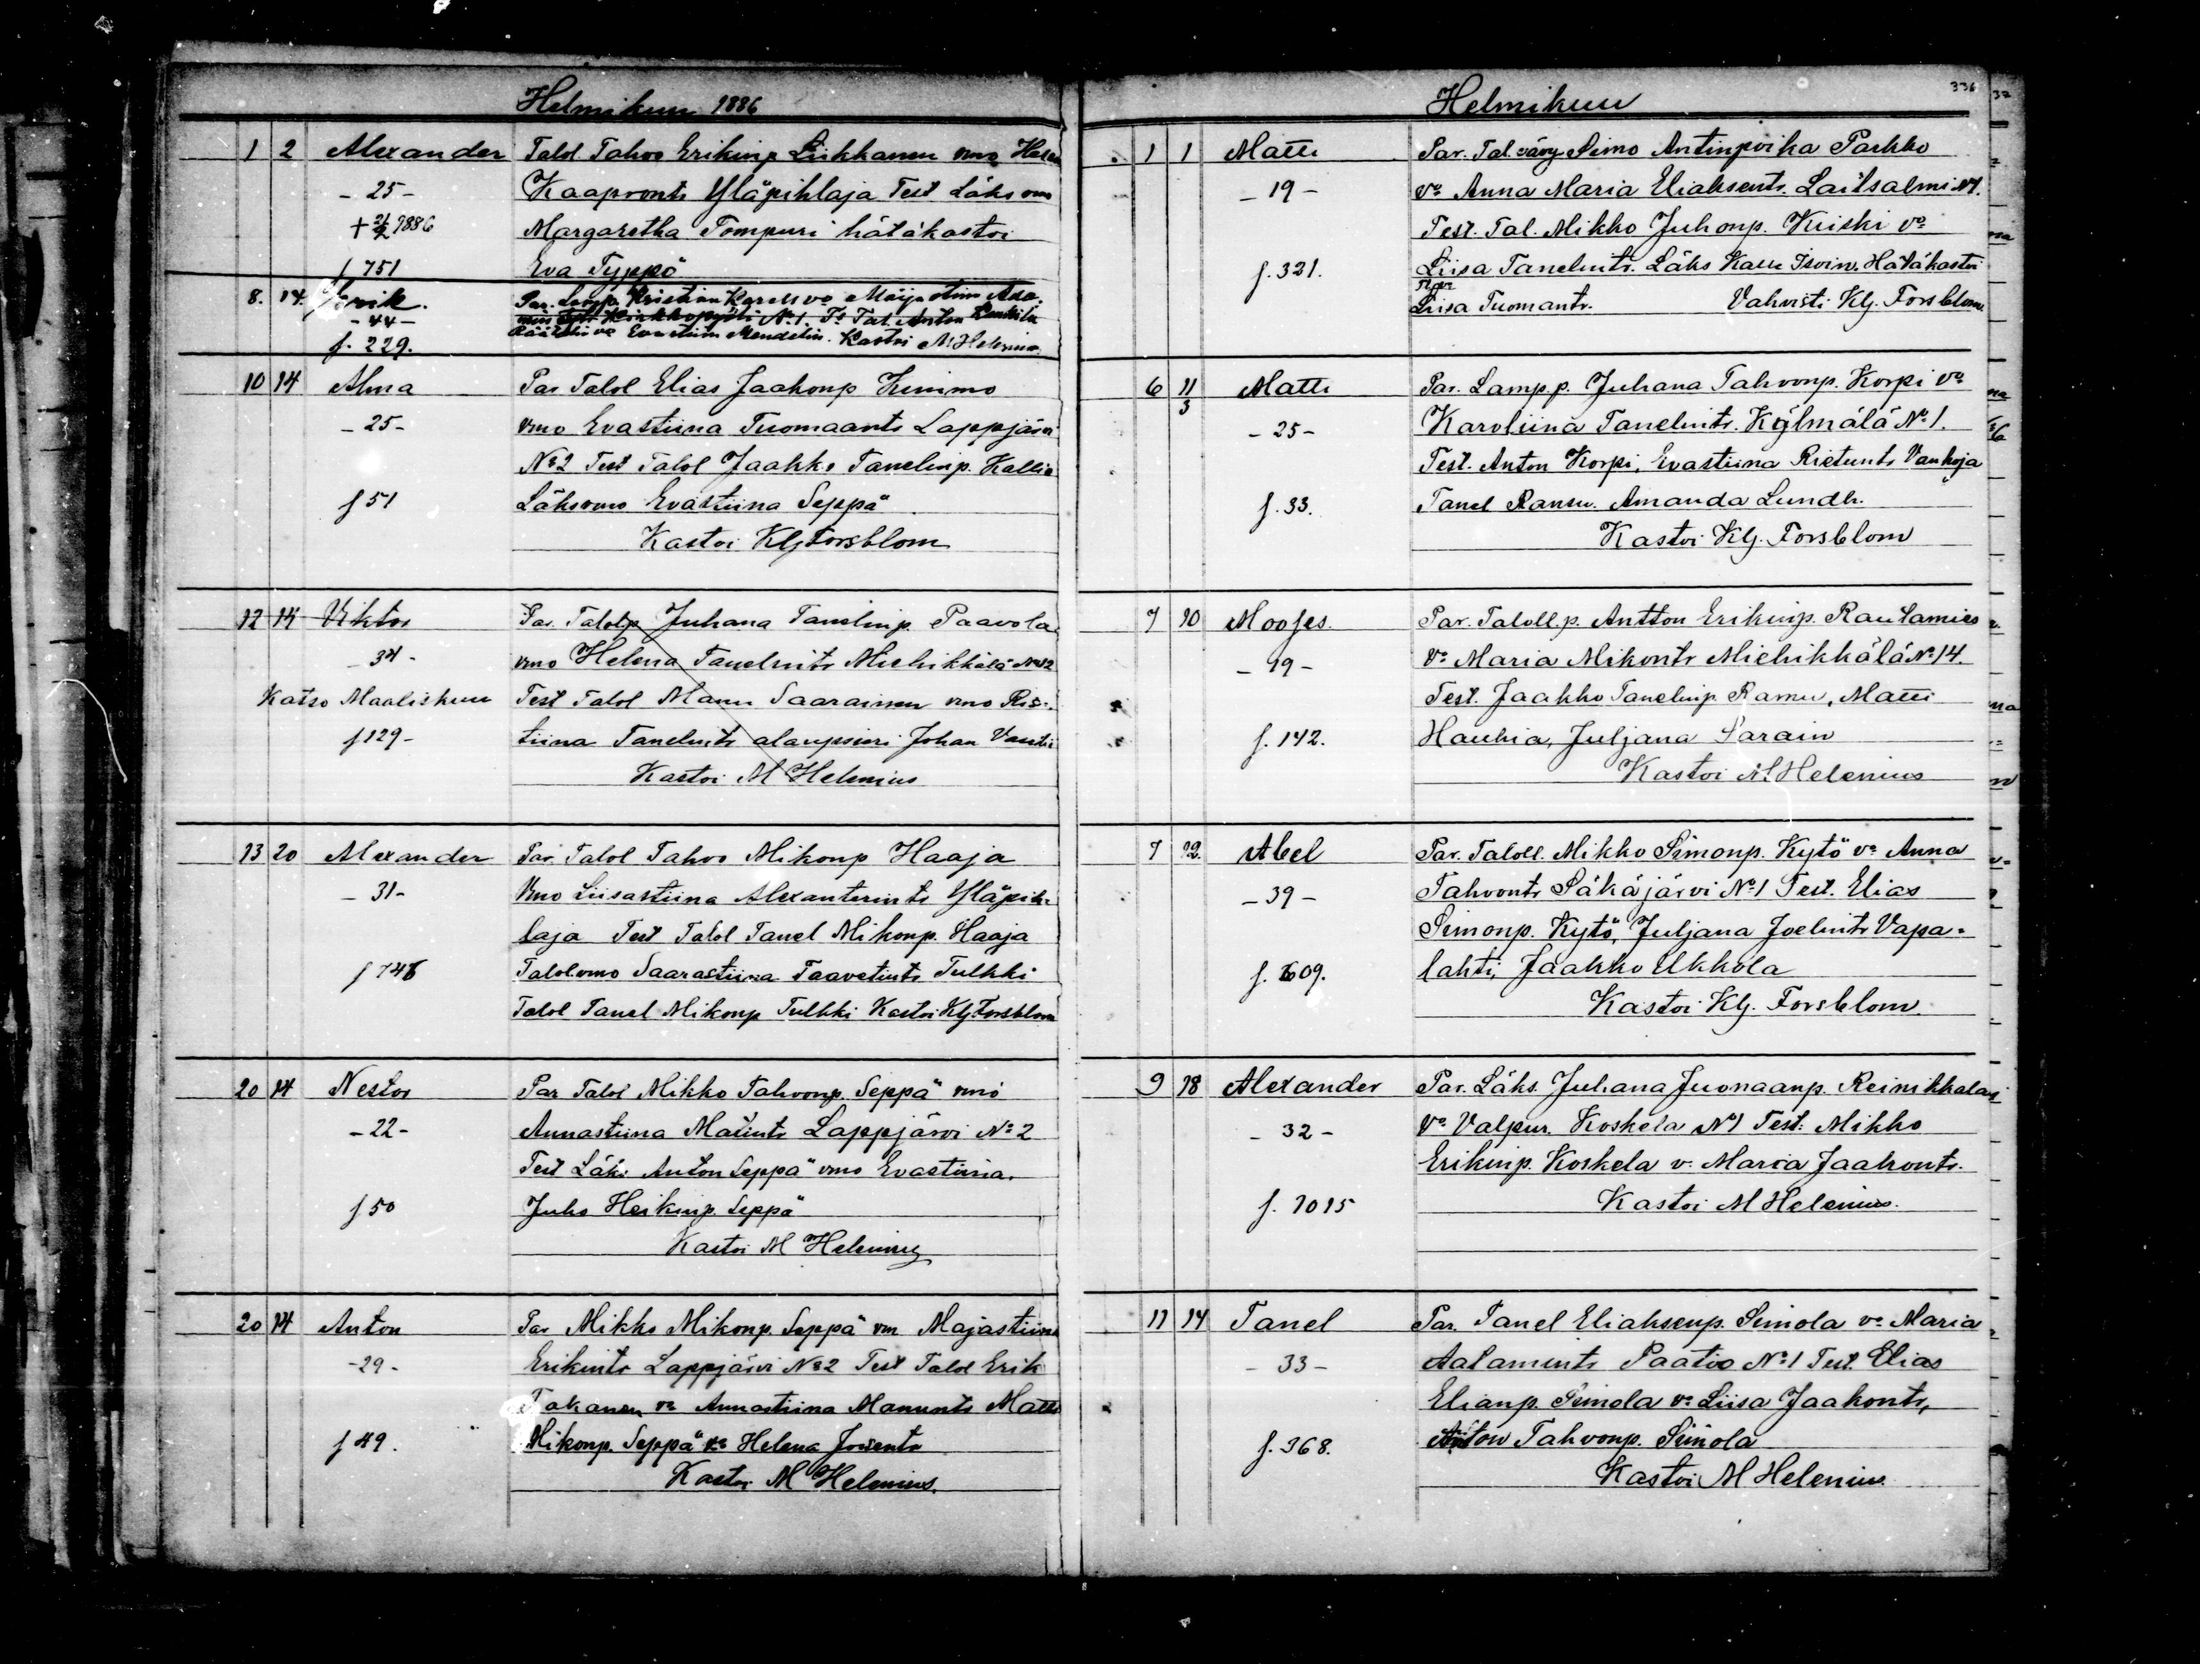 Helmikuu 1886
1 2 Alexander Talol Tahvo Erikinp. Liikkanen vmo Helen
- 25 - Kaapronts Yläpihlaja Test Läks vmo
+ 21/2 1886 Margaretha Tompuri hätäkastoi
f 751 Eva Typpö
8. 14. Eerik. Par. Lampp. Kristian Karels vo Maija stiina Ada-
- 44 - Kirkkopyöli No 1. Ts Tal. Anton
f. 229. Räätäli vo Evastiina Mendelin. Kastoi M. Helenius
10 14 Alma Par Talol Elias Jaakonp Kimmo
- 25 - vmo Evastiina Tuomaants Lappjärvi
No 2 Test Talol Jaakko Tanelinp. Kallio
f 51 Läksvmo Evastiina Seppä
Kastoi Klj Forsblom
12 14 Viktor Par. Talolp Juhana Tanelinp. Paavola
- 34 - vmo Helena Tanelints Miehikkälä No 12
Katso Maaliskuu Test Talol Manu Saarainen vmo Ris-
f 129 - tiina Tanelints alaupsieri Johan
Kastoi M Helenius
13 20 Alexander Par. Talol Tahvo Mikonp Haaja
- 31 - Vmo Liisastiina Alexanterints Yläpih-
laja Test Talol Tanel Mikonp. Haaja
f 746 Talolvmo Saarastiina Taavetints Tulkki
Talol Tanel Mikonp Tulkki Kastoi Klj Forsblom
20 14 Nestor Par Talol Mikko Tahvonp. Seppä vmo
- 22 - Annastiina Matints Lappjärvi No 2
Test Läks Anton Seppä vmo Evastiina.
f 50 Juho Heikinp. Seppä
Kastoi M Helenius
20 14 Anton Par Mikko Mikonp. Seppä vm Majastiina
- 29 - Erikints Lappjärvi No 2 Test Talol Erik
Takanen vo Annastiina Manunts Matts
f 49. Mikonp. Seppä vo Helena Joosents
Kastoi M Helenius.
Helmikuu 336
1 1 Matti Par. Tal. vävy Simo Antinpoika Parkko
- 19 - vo Anna Maria Eliaksents. Laitsalmi No 1.
Test. Tal. Mikko Juhonp. Kiiski vo
f. 321. Liisa Tanelints. Läks Kalle Hätäkastoi
Liisa Tuomants. Vahvisti Klj. Forsblom
6 11/3 Matti Par. Lamp p. Juhana Tahvonp. Korpi vo
- 25 - Karoliina Tanelints. Kylmälä No 1.
Test. Anton Korpi, Evastiina Rietunts Vankoja
f. 33. Tanel Ransu. Amanda Lundh.
Kastoi Klj. Forsblom
7 10 Mooses. Par. Taloll. p. Antton Erikinp. Rautamies
- 19 - vo Maria Mikonts Miehikkälä No 14.
Test. Jaakko Tanelinp Ramu, Matti
f. 142. Hauhia, Juljana Sarain
Kastoi M. Helenius
7 12 Abel Par. Taloll. Mikko Simonp. Kytö vo Anna
- 39 - Tahvonts Säkäjärvi No 1 Test. Elias
Simonp. Kytö, Juljana Joelints Vapa-
f. 609. lahti, Jaakko Ukkola
Kastoi Klj. Forsblom.
9 18 Alexander Par. Läks. Juhana Juonaanp. Reinikkalasi
- 32 - vo Valpur. Koskela No 1 Test. Mikko
Erikinp. Koskela v. Maria Jaakonts.
f. 1015 Kastoi M Helenius.
11 14 Tanel Par. Tanel Eliaksenp. Simola vo Maria
- 33 - Aatamints Paatio No 1 Test. Elias
Elianp. Simola vo Liisa Jaakonts,
f. 368. Anton Tahvonp. Simola
Kastoi M Helenius